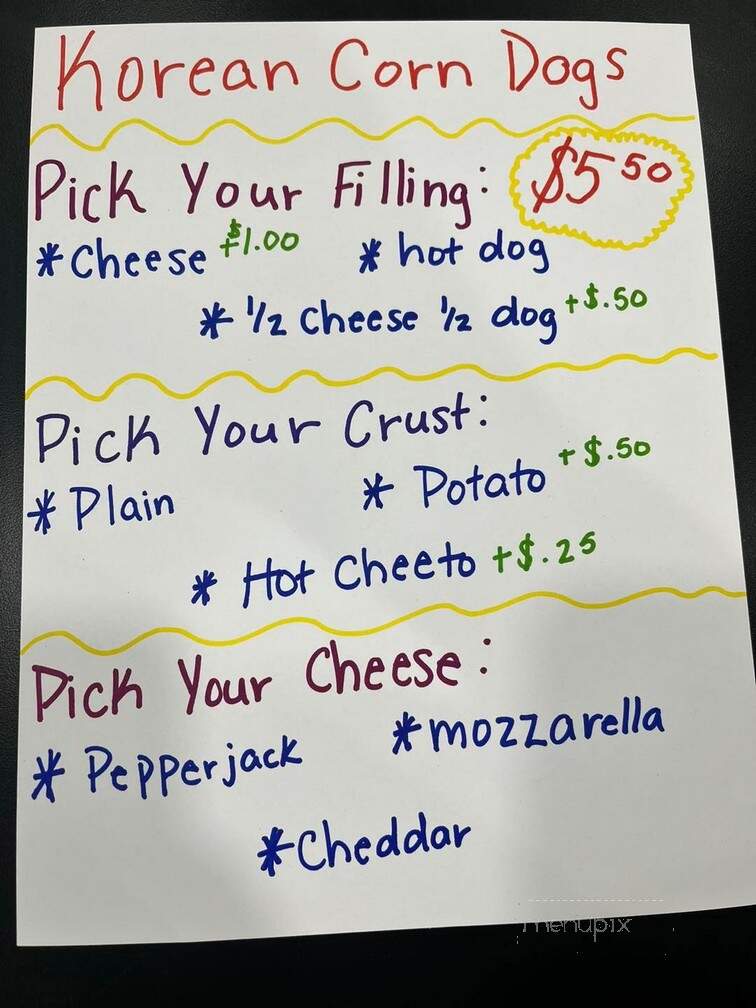 Korean Corn Dogs
Pick Your Filling: $5 50
* Cheese +$1.00 * hot dog
* 1/2 cheese 1/2 dog +$.50
Pick Your Crust:
* Plain * Potato +$.50
* Hot Cheeto +$.25
Pick Your Cheese:
* Pepperjack * mozzarella
* Cheddar
menupix